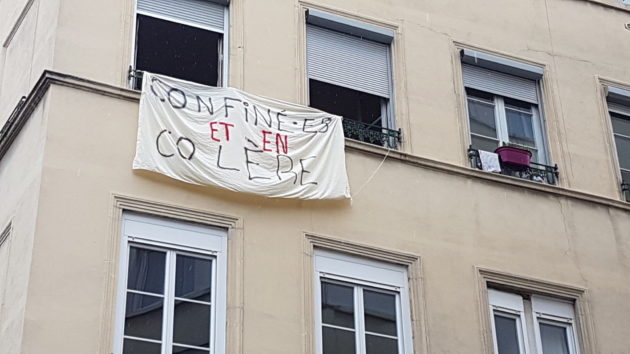 CONFINÉ·ES
ET EN
COLÈRE